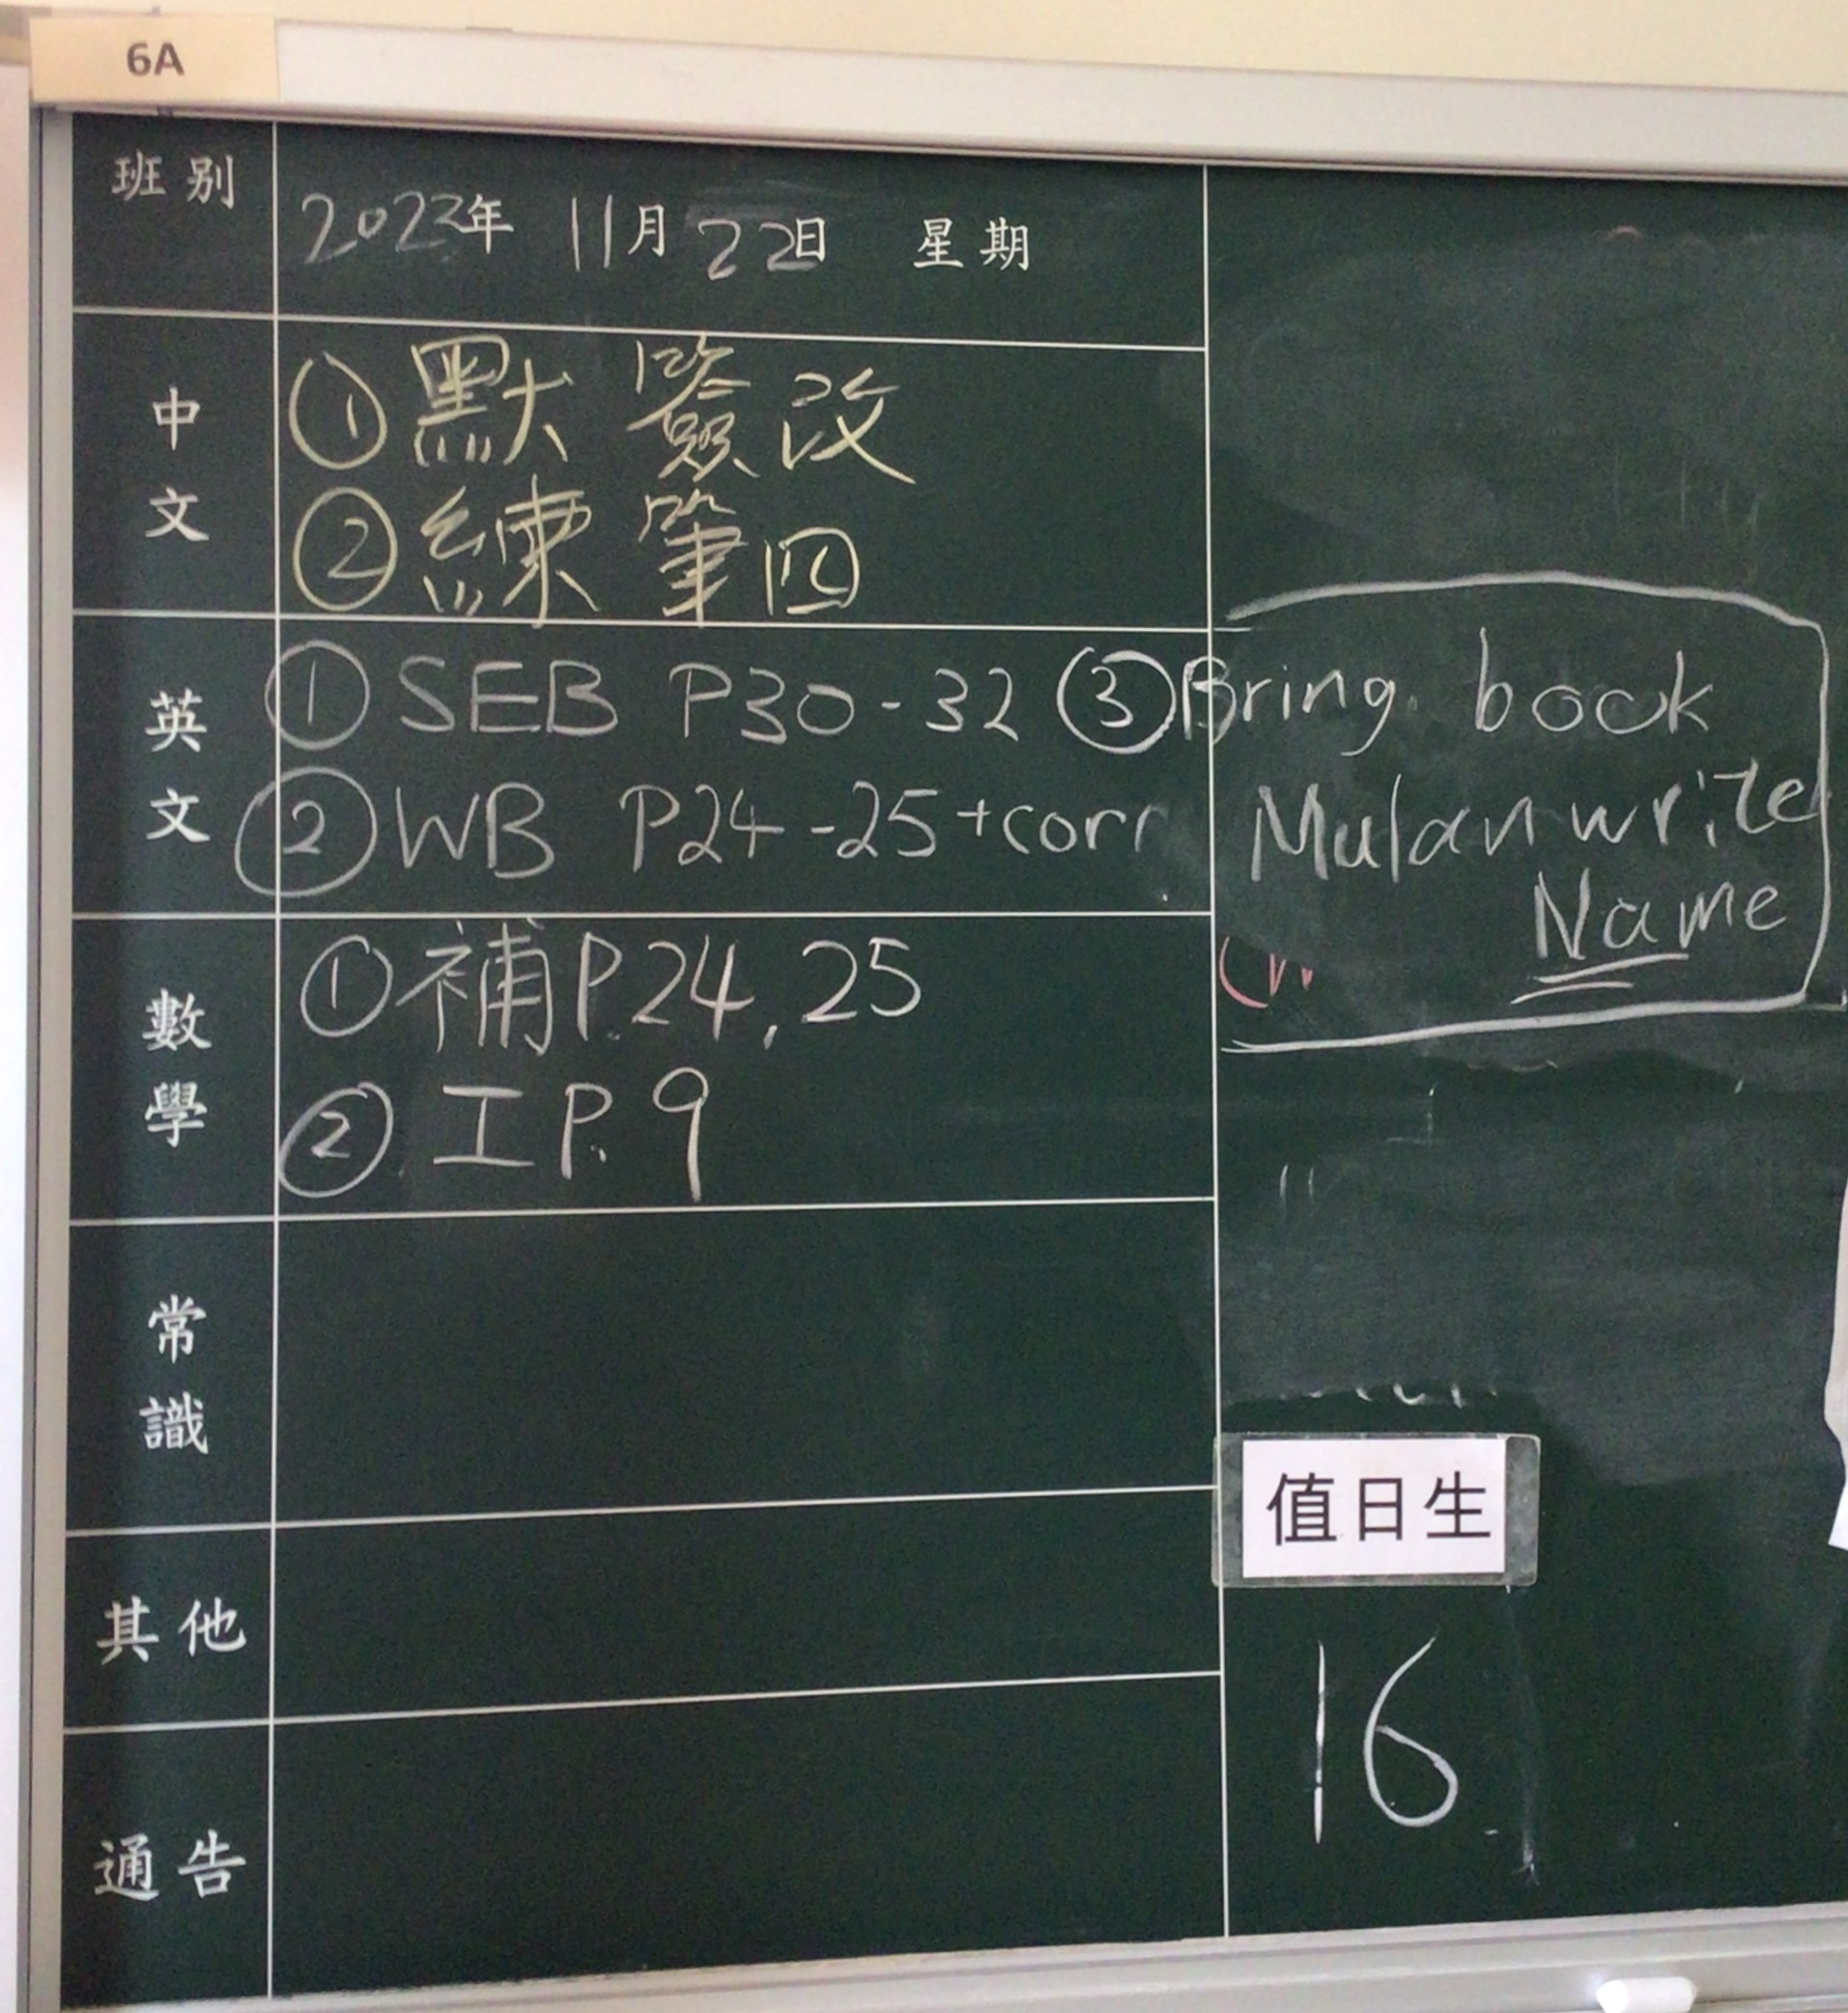 6A
班別
2023年 11月22日 星期
中文
① 默 簽改
② 練筆四
英文
① SEB P30-32 ③ Bring book
② WB P24-25+corr Mulan write
Name
數學
① 補P.24, 25
② 工P.9
常識
其他
通告
值日生
16